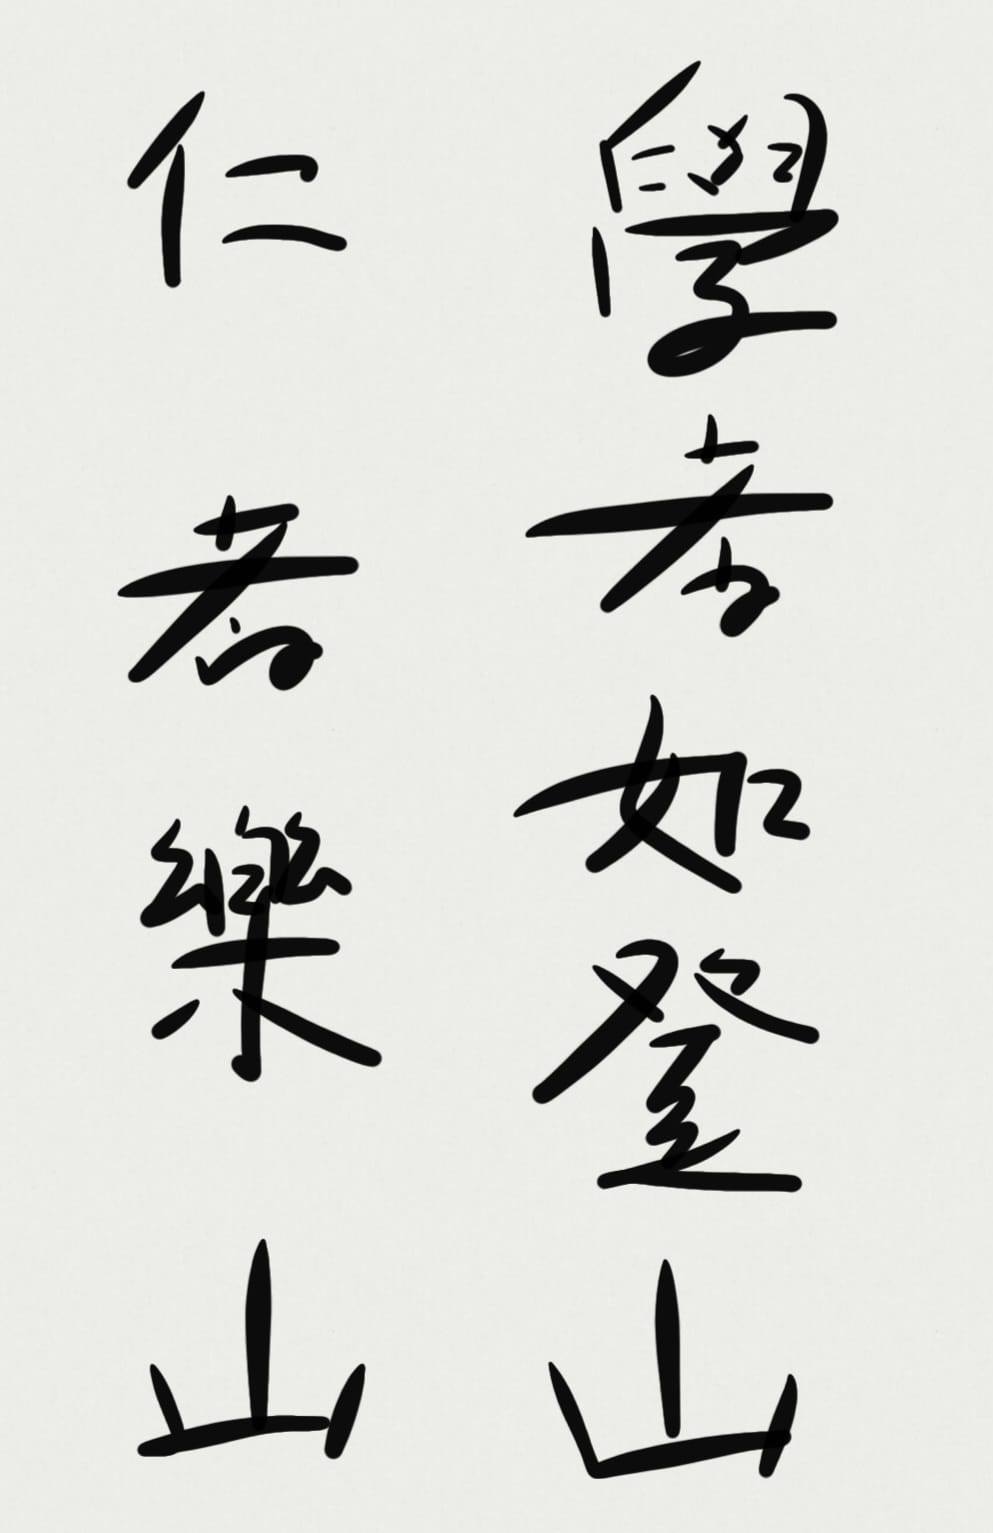 學者如登山
仁者樂山